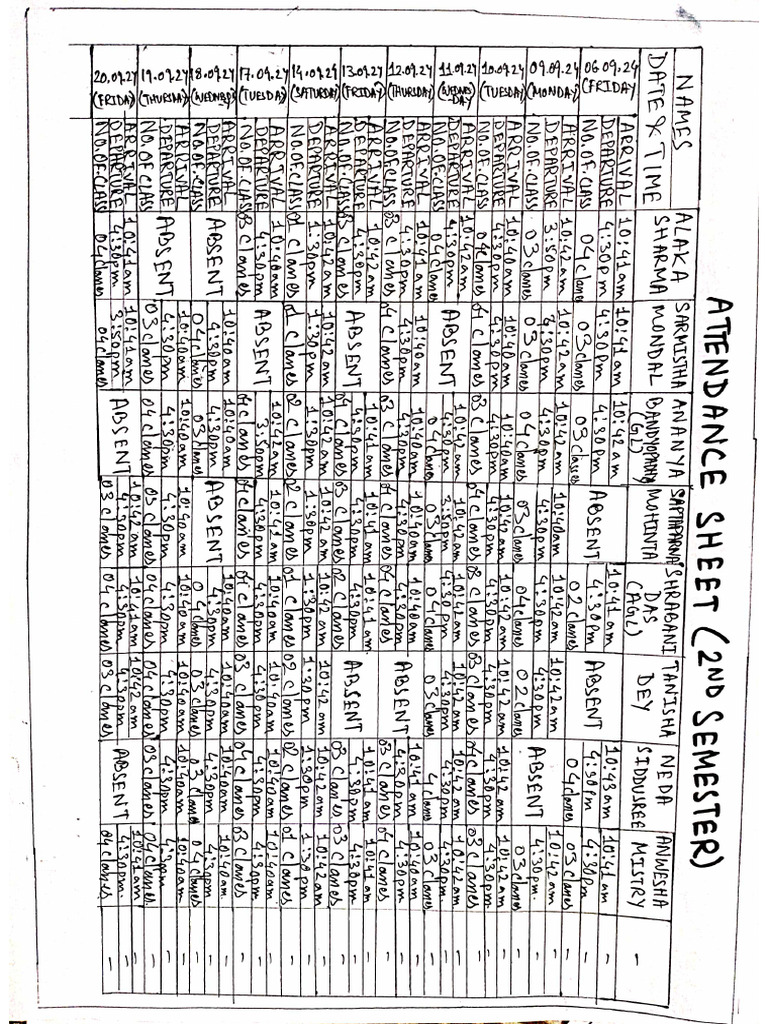 ATTENDANCE SHEET (2ND SEMESTER)
NAMES ALAKA SARMISTHA ANANYA SAPTAPARNA SHRABANI TANISHA NEDA ANWESHA
DATE & TIME SHARMA MONDAL BANDYOPADHYAY (GL) MOHINTA DAS (AGL) DEY SIDDUSREE MISTRY -
06.09.24 ARRIVAL 10:41am 10:41am 10:42am 10:41am 10:43am 10:41am -
(FRIDAY) DEPARTURE 4:30pm 4:30pm 4:30pm ABSENT 4:30pm ABSENT 4:30pm 4:30pm -
NO.OF.CLASS 04 classes 03 classes 03 classes 02 classes 04 classes 03 classes -
09.09.24 ARRIVAL 10:42am 10:42am 10:40am 10:42am -
(MONDAY) DEPARTURE 3:50pm 4:30pm 4:30pm 4:30pm 4:30pm ABSENT 4:30pm -
NO.OF.CLASS 03 classes 03 classes 04 classes 03 classes 04 classes 02 classes 03 classes -
10.09.24 ARRIVAL 10:40am 10:40am 10:40am 10:42am 10:42am 10:42am 10:42am 10:42am -
(TUESDAY) DEPARTURE 4:30pm 4:30pm 4:30pm 4:30pm 4:30pm 4:30pm 4:30pm 4:30pm -
NO.OF.CLASS 04 classes 04 classes 03 classes 04 classes 03 classes 03 classes 04 classes 03 classes -
11.09.24 ARRIVAL 10:42am 10:42am 10:42am 10:42am 10:42am 10:42am 10:42am -
(WEDNESDAY) DEPARTURE 4:30pm ABSENT 4:30pm 3:50pm 4:30pm 4:30pm 4:30pm 4:30pm -
NO.OF.CLASS 04 classes 04 classes 03 classes 04 classes 03 classes 4 classes 03 classes -
12.09.24 ARRIVAL 10:41am 10:40am 10:40am 10:40am 10:40am 10:42am 10:40am -
(THURSDAY) DEPARTURE 4:30pm 4:30pm 4:30pm 4:30pm 4:30pm ABSENT 4:30pm 4:30pm -
NO.OF.CLASS 03 classes 04 classes 03 classes 04 classes 04 classes 03 classes 04 classes -
13.09.24 ARRIVAL 10:42am 10:41am 10:41am 10:41am 10:41am 10:41am -
(FRIDAY) DEPARTURE 4:30pm ABSENT 4:30pm 4:30pm 4:30pm ABSENT 4:30pm 4:30pm -
NO.OF.CLASS 03 classes 04 classes 03 classes 02 classes 03 classes 03 classes -
14.09.24 ARRIVAL 10:42am 10:42am 10:42am 10:42am 10:42am 10:42am 10:42am 10:42am -
(SATURDAY) DEPARTURE 1:30pm 1:30pm 1:30pm 1:30pm 1:30pm 1:30pm 1:30pm 1:30pm -
NO.OF.CLASS 01 classes 01 classes 02 classes 02 classes 01 classes 02 classes 02 classes 01 classes -
17.09.24 ARRIVAL 10:42am 10:42am 10:42am 10:40am 10:40am 10:40am 10:40am -
(TUESDAY) DEPARTURE 4:30pm ABSENT 3:50pm 4:30pm 4:30pm 4:30pm 4:30pm 4:30pm -
NO.OF.CLASS 03 classes 04 classes 04 classes 04 classes 03 classes 04 classes 03 classes -
18.09.24 ARRIVAL 10:40am 10:40am 10:40am 10:40am 10:40am 10:40am -
(WEDNESDAY) DEPARTURE ABSENT 4:30pm 4:30pm ABSENT 4:30pm 4:30pm 4:30pm 4:30pm -
NO.OF.CLASS 04 classes 03 classes 04 classes 03 classes 03 classes 04 classes -
19.09.24 ARRIVAL 10:40am 10:40am 10:40am 10:40am 10:40am 10:40am 10:40am -
(THURSDAY) DEPARTURE ABSENT 4:30pm 4:30pm 4:30pm 4:30pm 4:30pm 4:30pm 4:30pm -
NO.OF CLASS 03 classes 04 classes 03 classes 04 classes 04 classes 03 classes 04 classes -
20.09.24 ARRIVAL 10:41am 10:41am 10:42am 10:41am 10:42am 10:41am -
(FRIDAY) DEPARTURE 4:30pm 3:50pm ABSENT 4:30pm 4:30pm 4:30pm ABSENT 4:30pm -
NO.OF.CLASS 04 classes 04 classes 03 classes 04 classes 03 classes 04 classes -